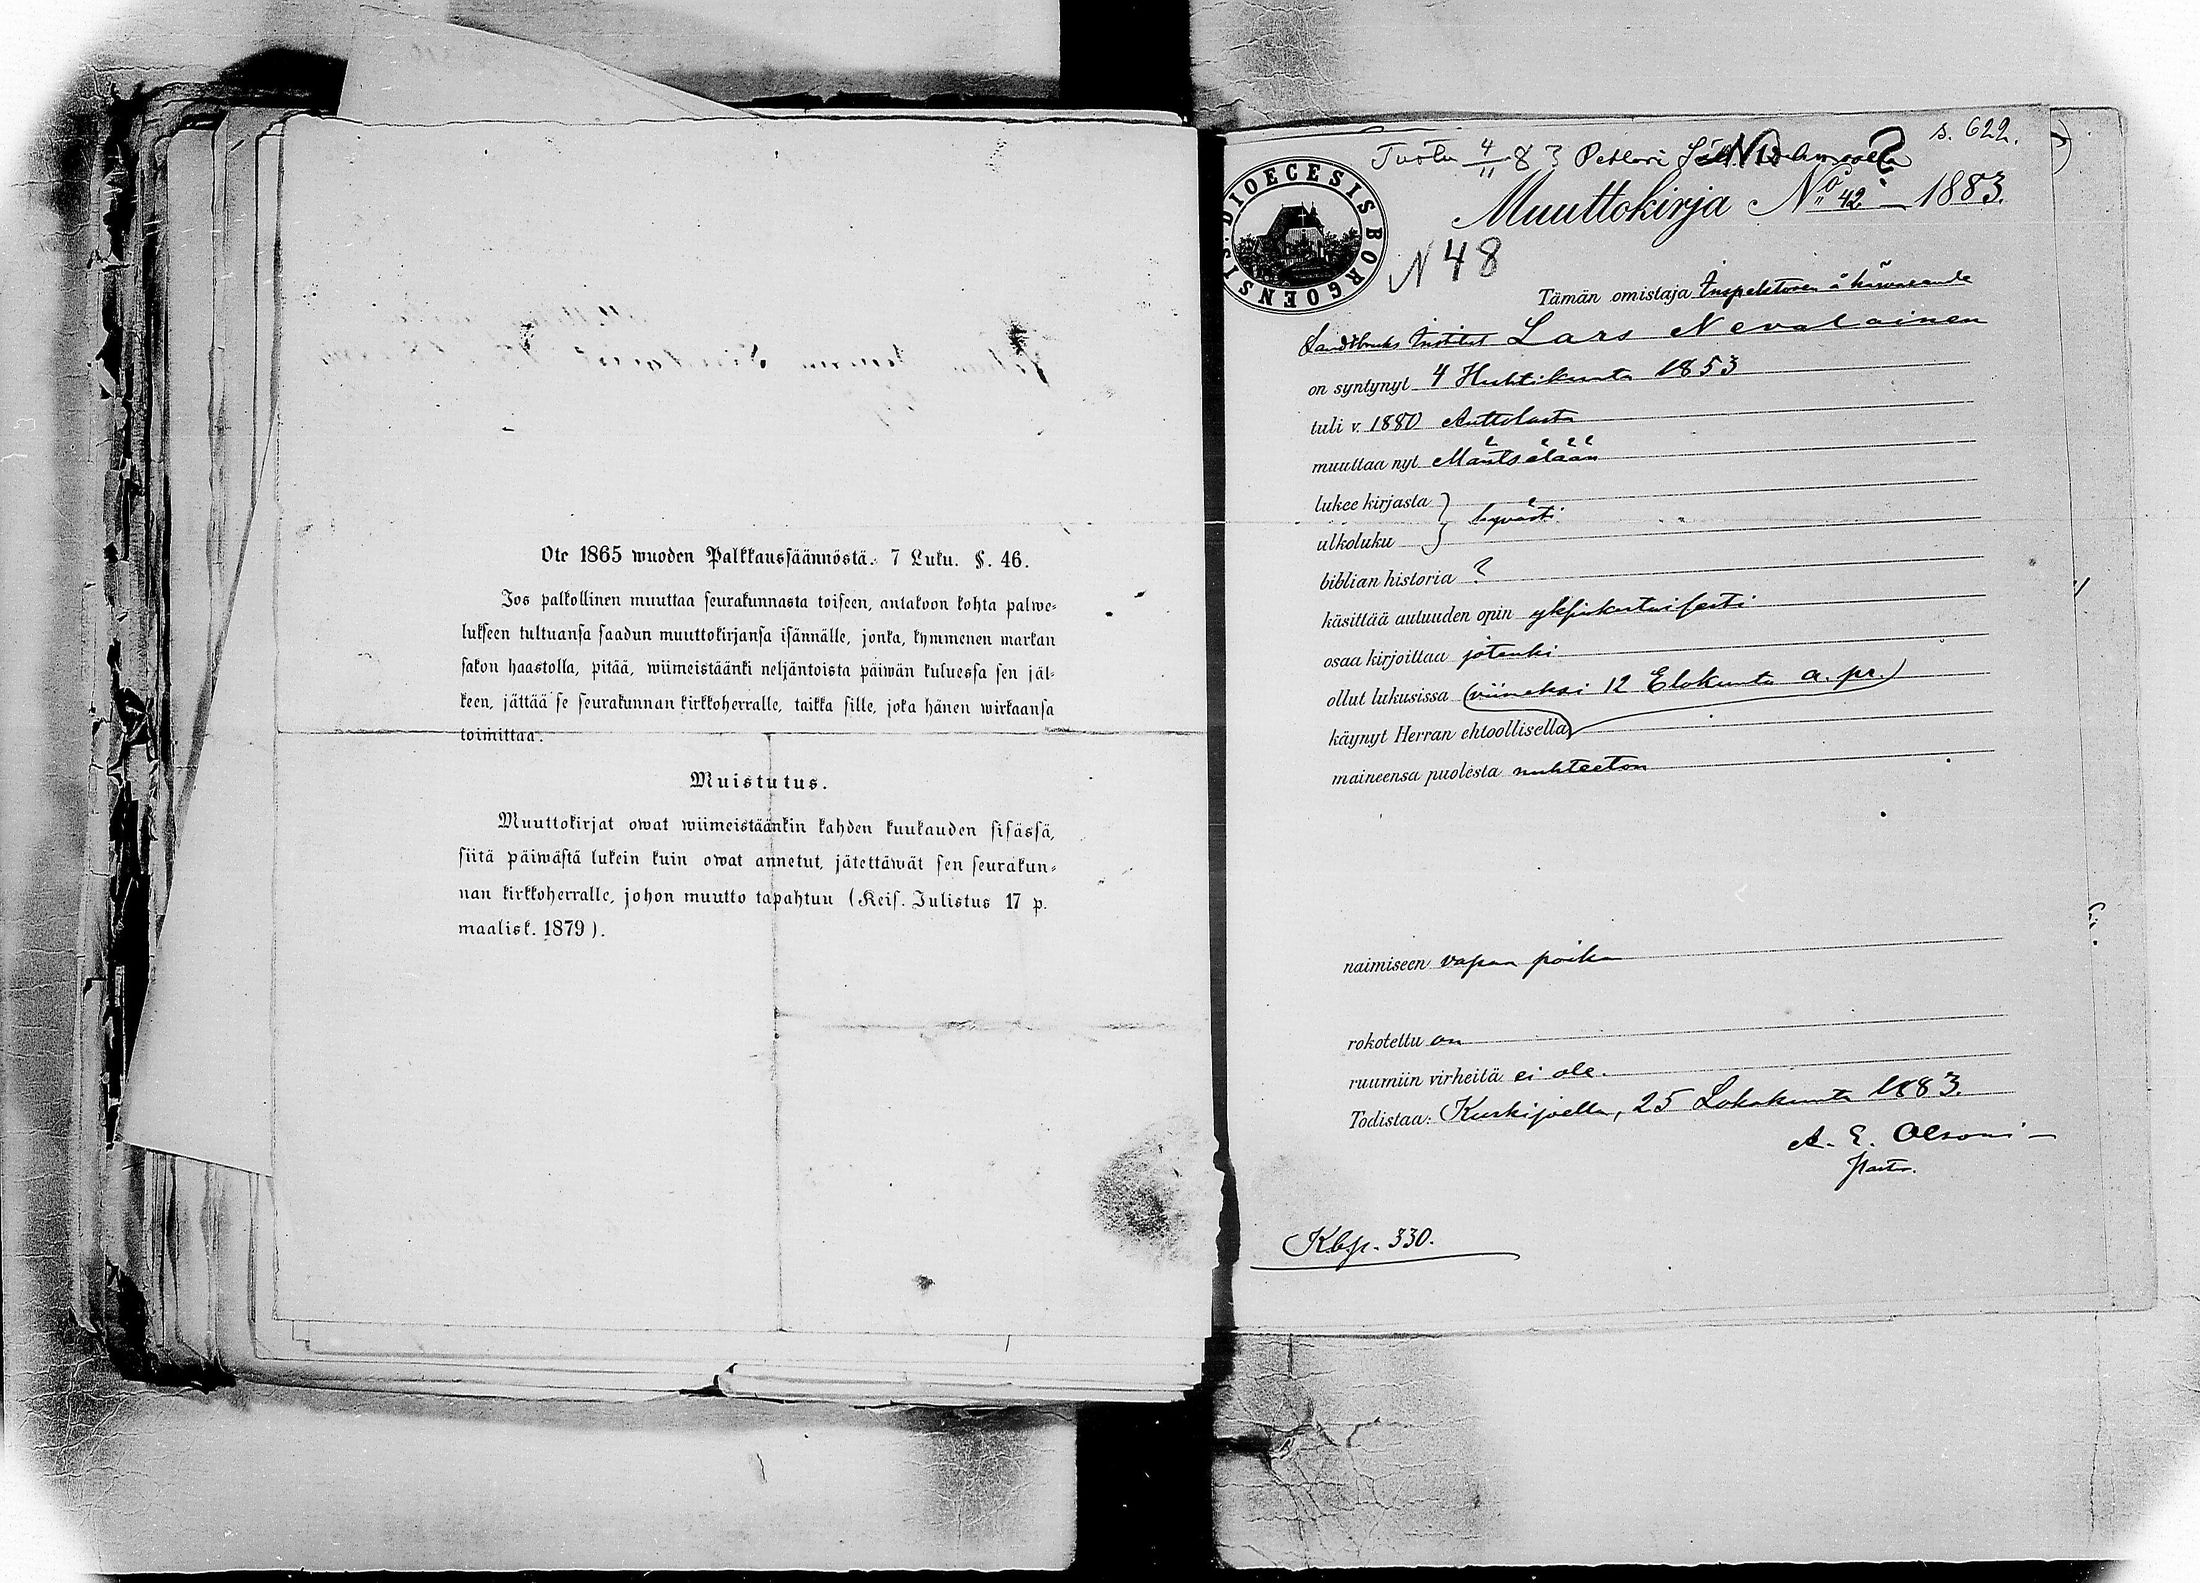 Ote 1865 wuoden Palkkaussäännöstä. 7 Luku. §. 46.
Jos palkollinen muuttaa seurakunnasta toiseen, antakoon kohta palwe-
lukseen tultuansa saadun muuttokirjansa isännälle, jonka, kymmenen markan
sakon haastolla, pitää, wiimeistäänki neljäntoista päiwän kuluessa sen jäl-
keen, jättää se seurakunnan kirkkoherralle, taikka sille, joka hänen wirkaansa
toimittaa.
Muistutus.
Muuttokirjat owat wiimeistäänkin kahden kuukauden sisässä,
siitä päiwästä lukein kuin owat annetut, jätettäwät sen seurakun-
nan kirkkoherralle, johon muutto tapahtuu (Keis. Julistus 17 p.
maalisk. 1879).
s. 622.
Tuotu 4/11 83 Petkari
DIOECESIS BORGOENSIS
Muuttokirja No 42 1883.
N 48
Tämän omistaja Inspektoren å härvarande
Landtbruks Institut Lars Nevalainen
on syntynyt 4 Huhtikuuta 1853
tuli v. 1880 Anttolasta
muuttaa nyt Mäntsälään
lukee kirjasta
ulkoluku } hyvästi
biblian historia ?
käsittää autuuden opin yksinkertaisesti
osaa kirjoittaa jotenki
ollut lukusissa (viimeksi 12 Elokuuta a. pr.)
käynyt Herran ehtoollisella
maineensa puolesta nuhteeton
naimiseen vapaa poika
rokotettu on
ruumiin virheitä ei ole.
Todistaa: Kurkijoella, 25 Lokakuuta 1883.
A. E. Olsoni
Past.
Kbp. 330.